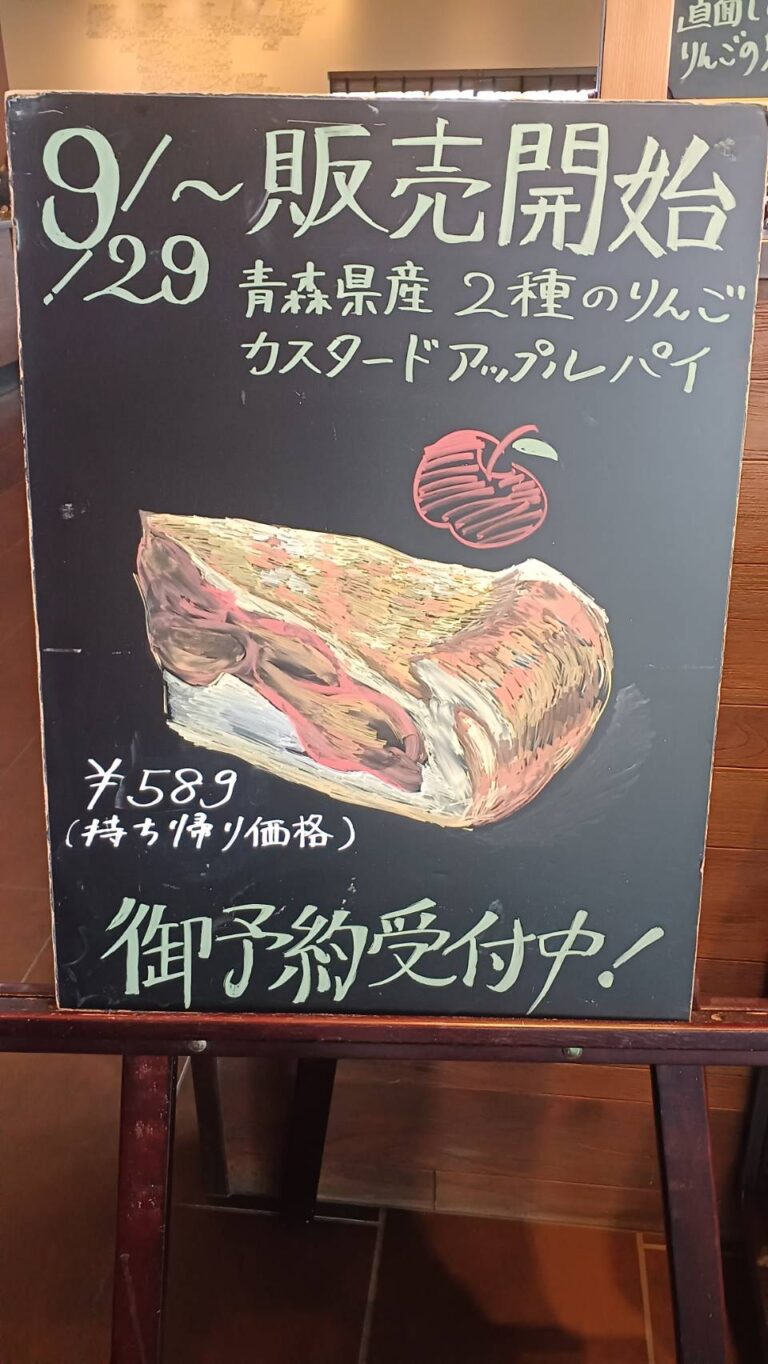 9/29~ 販売開始
青森県産 2種のりんご
カスタードアップルパイ
¥589
(持ち帰り価格)
御予約受付中!
直面し
りんごの